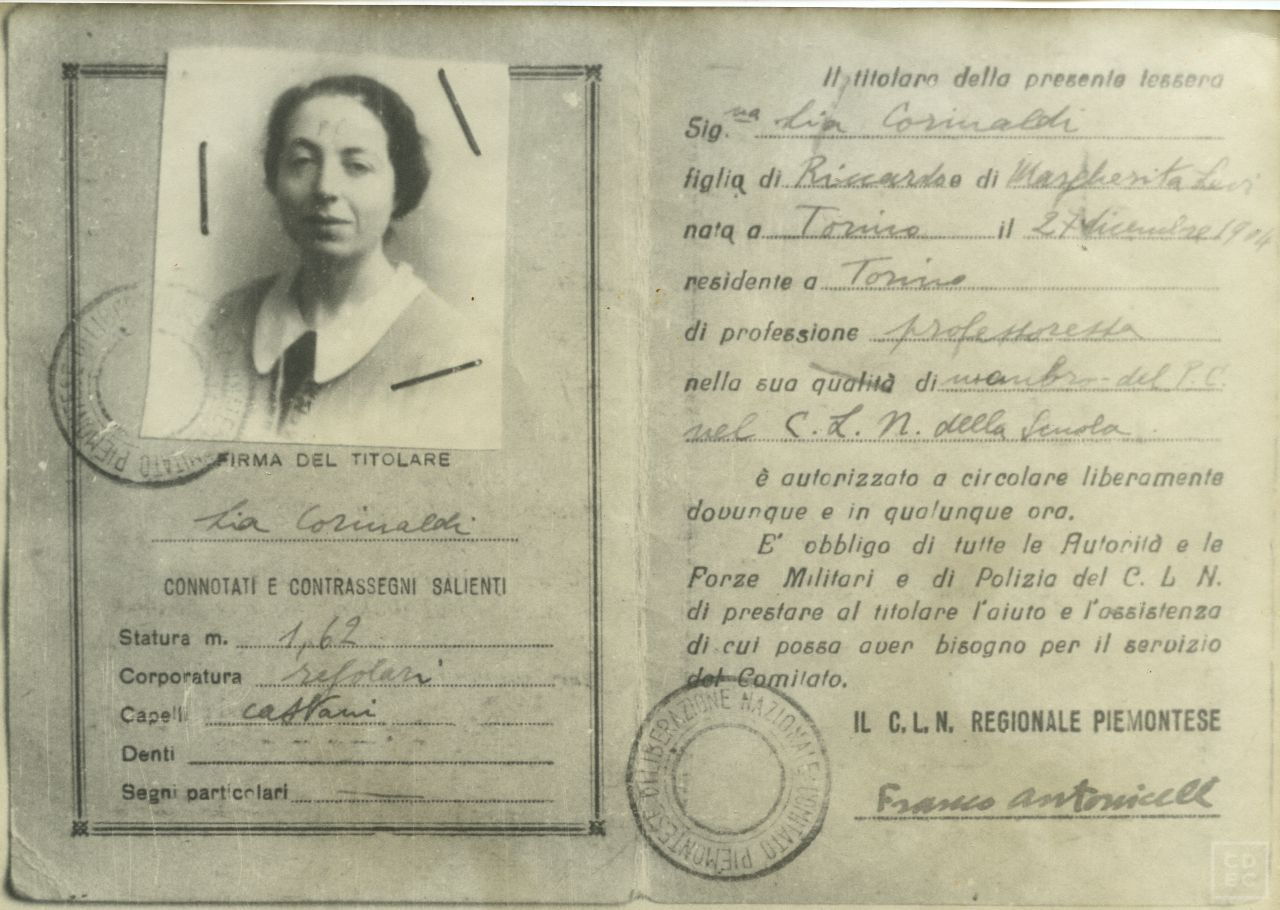 FIRMA DEL TITOLARE
Lia Corinaldi
CONNOTATI E CONTRASSEGNI SALIENTI
Statura m. 1,62
Corporatura regolari
Capelli castani
Denti
Segni particolari
Il titolare della presente tessera
Sig.na Lia Corinaldi
figlia di Riccardo e di Margherita Levi
nata a Torino il 27 dicembre 1904
residente a Torino
di professione professoressa
nella sua qualità di membro del P.C.
nel C.L.N. della Scuola
è autorizzato a circolare liberamente
dovunque e in qualunque ora.
E' obbligo di tutte le Autorità e le
Forze Militari e di Polizia del C. L N.
di prestare al titolare l'aiuto e l'assistenza
di cui possa aver bisogno per il servizio
del Comitato.
IL C.L.N. REGIONALE PIEMONTESE
Franco Antonicelli
COMITATO PIEMONTESE DI LIBERAZIONE NAZIONALE
CDEC